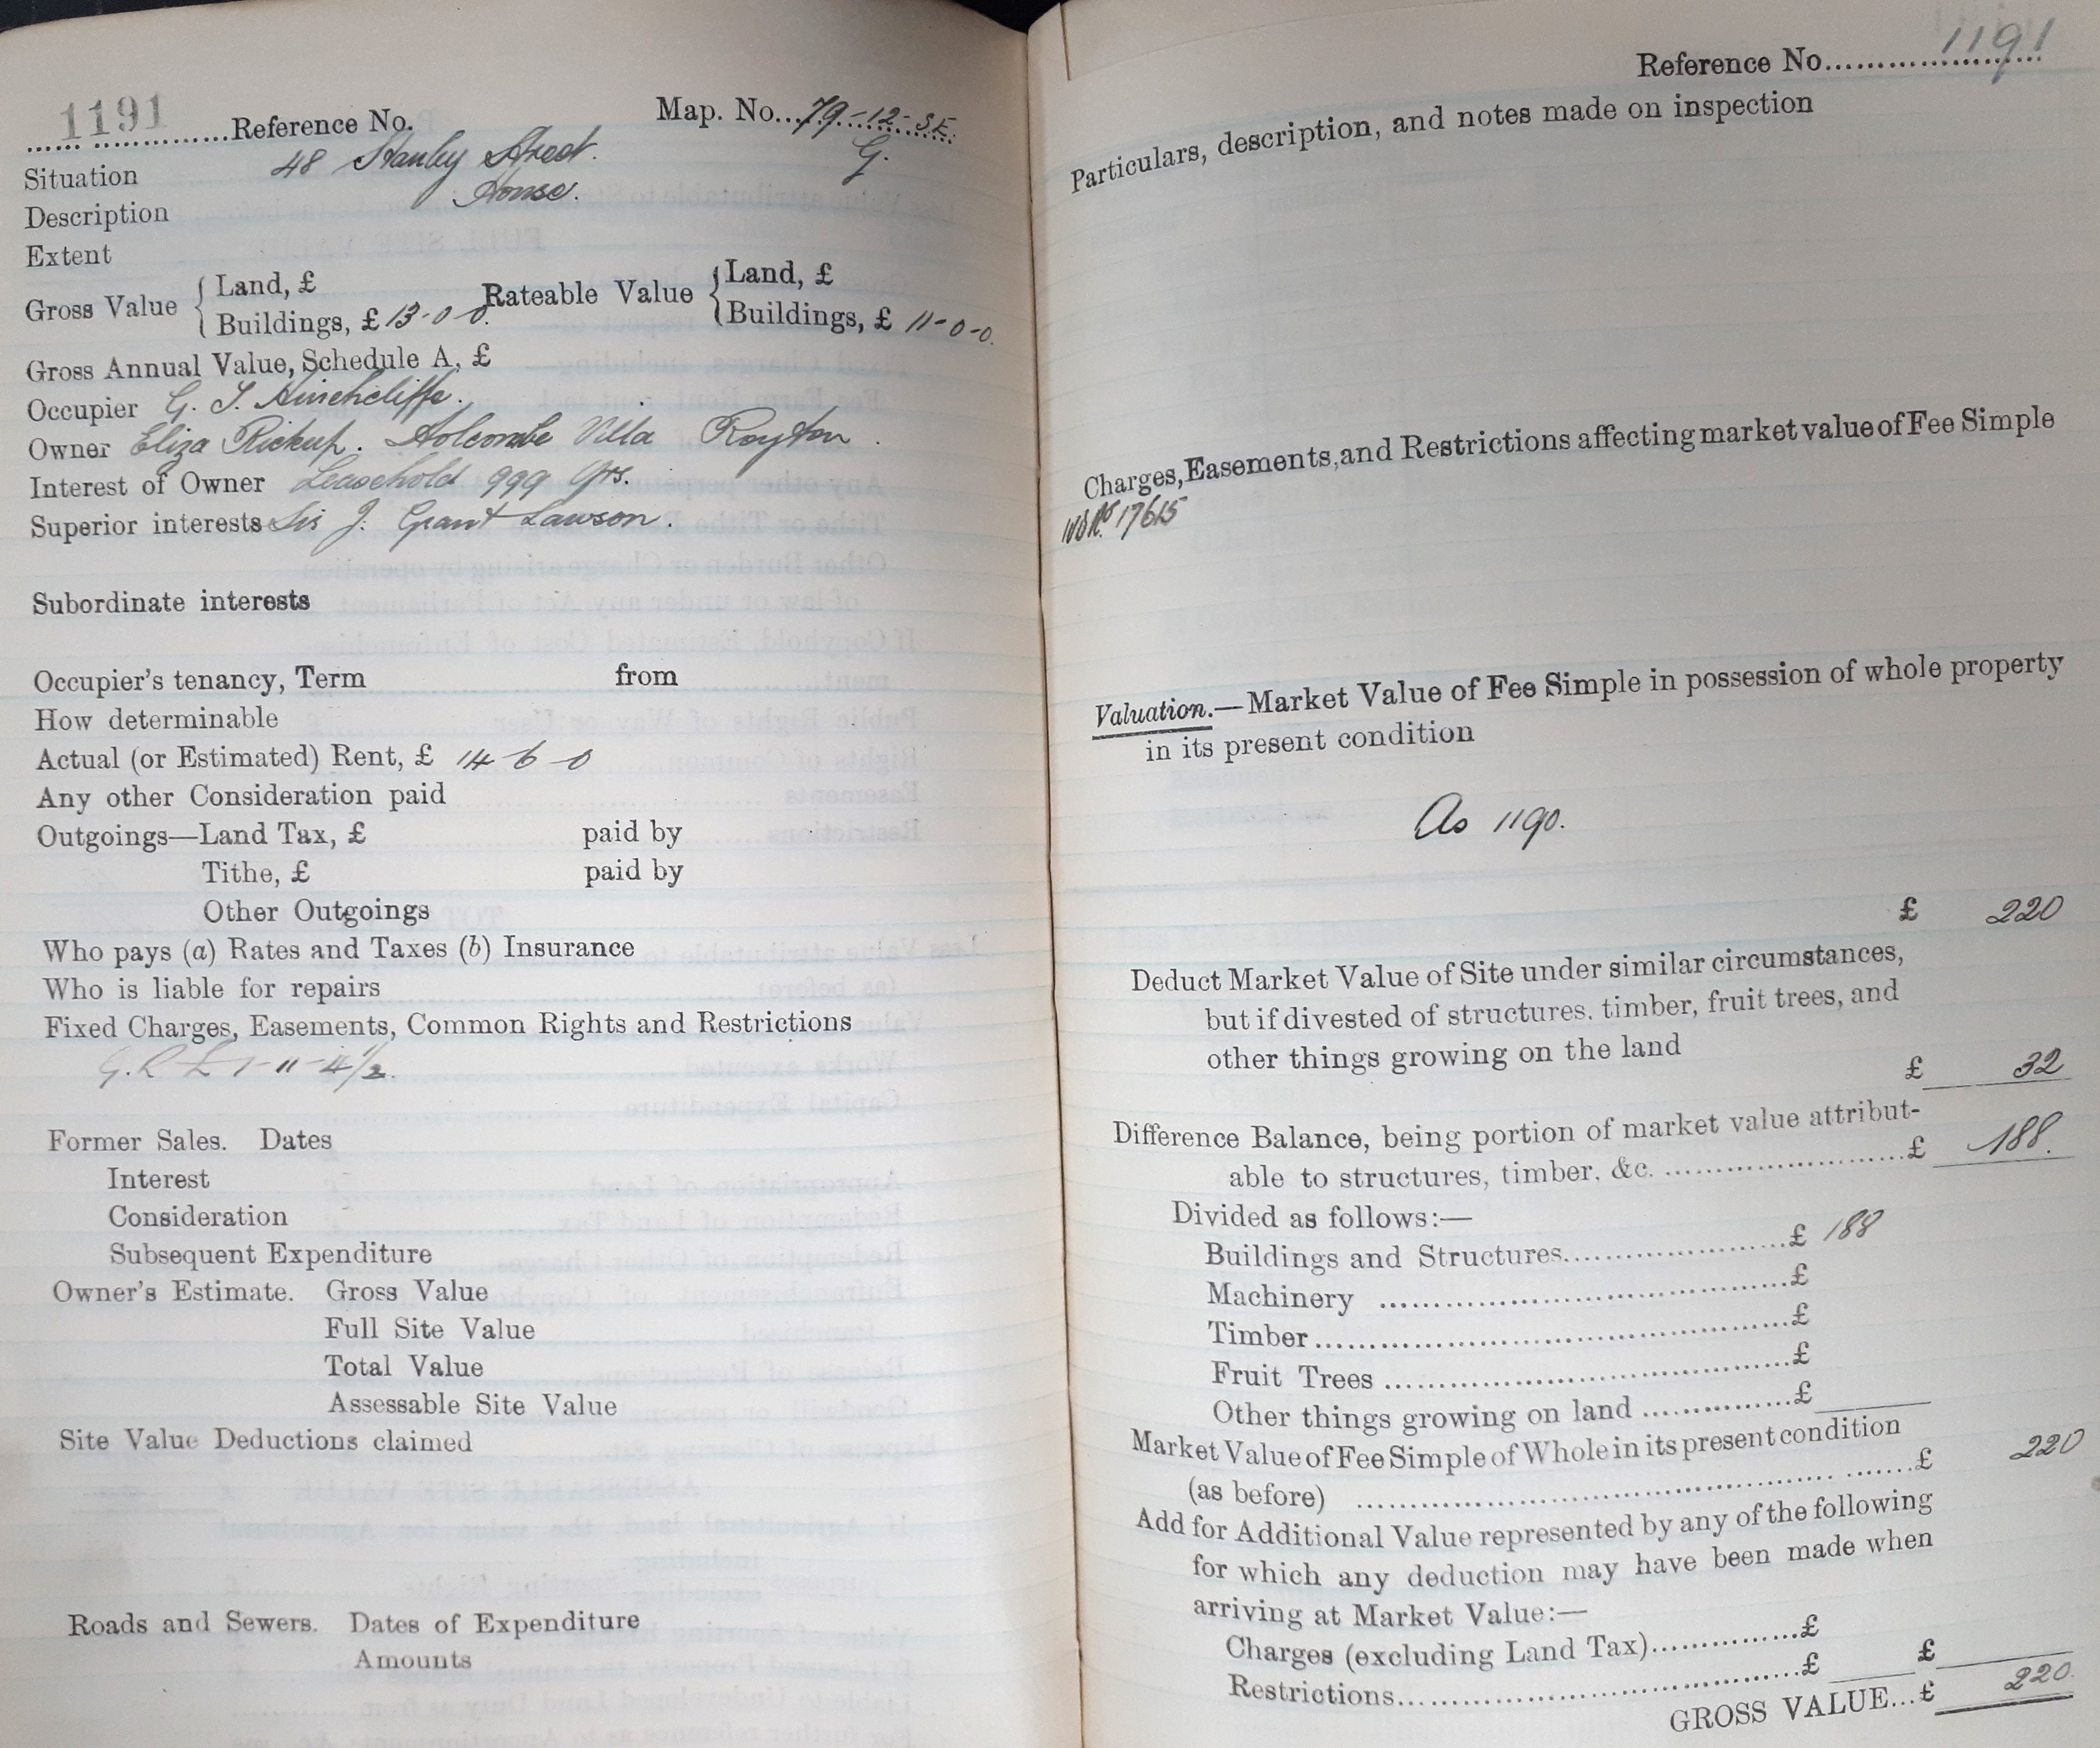 1191 Reference No. Map. No. 79-12-SE.
Situation 48 Stanley Street. G.
Description House.
Extent
Gross Value { Land, £ Rateable Value { Land, £
Buildings, £ 13-0-0. Buildings, £ 11-0-0.
Gross Annual Value, Schedule A, £
Occupier G. T. Hinchcliffe.
Owner Eliza Pickup. Holcombe Villa Royton.
Interest of Owner Leasehold 999 yrs.
Superior interests Sir J. Grant Lawson.
Subordinate interests
Occupier's tenancy, Term from
How determinable
Actual (or Estimated) Rent, £ 14 6 0
Any other Consideration paid
Outgoings—Land Tax, £ paid by
Tithe, £ paid by
Other Outgoings
Who pays (a) Rates and Taxes (b) Insurance
Who is liable for repairs
Fixed Charges, Easements, Common Rights and Restrictions
G.R £1-11-4½.
Former Sales. Dates
Interest
Consideration
Subsequent Expenditure
Owner's Estimate. Gross Value
Full Site Value
Total Value
Assessable Site Value
Site Value Deductions claimed
Roads and Sewers. Dates of Expenditure
Amounts
Reference No. 1191
Particulars, description, and notes made on inspection
Charges, Easements, and Restrictions affecting market value of Fee Simple
17615
Valuation.—Market Value of Fee Simple in possession of whole property
in its present condition
As 1190.
£ 220
Deduct Market Value of Site under similar circumstances,
but if divested of structures. timber, fruit trees, and
other things growing on the land
£ 32
Difference Balance, being portion of market value attribut-
able to structures, timber, &c. £ 188.
Divided as follows:—
Buildings and Structures £ 188
Machinery £
Timber £
Fruit Trees £
Other things growing on land £
Market Value of Fee Simple of Whole in its present condition
(as before) £ 220
Add for Additional Value represented by any of the following
for which any deduction may have been made when
arriving at Market Value:—
Charges (excluding Land Tax) £
Restrictions £ £
GROSS VALUE... £ 220.